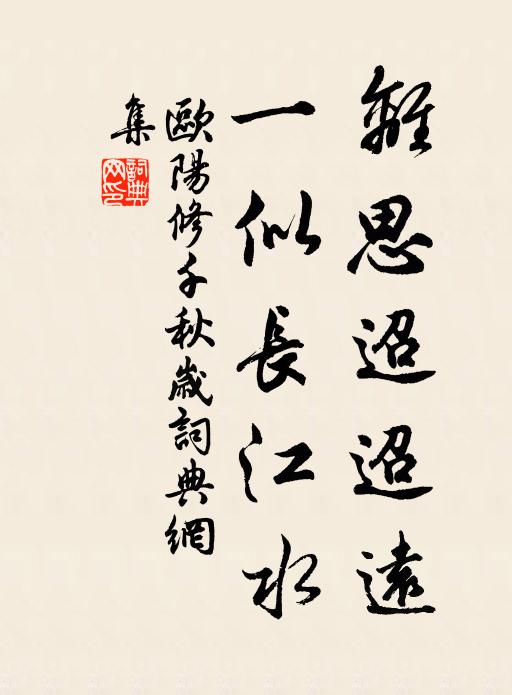 離思迢迢遠
一似長江水
歐陽修千秋歲詞典網
集
詞典
网印